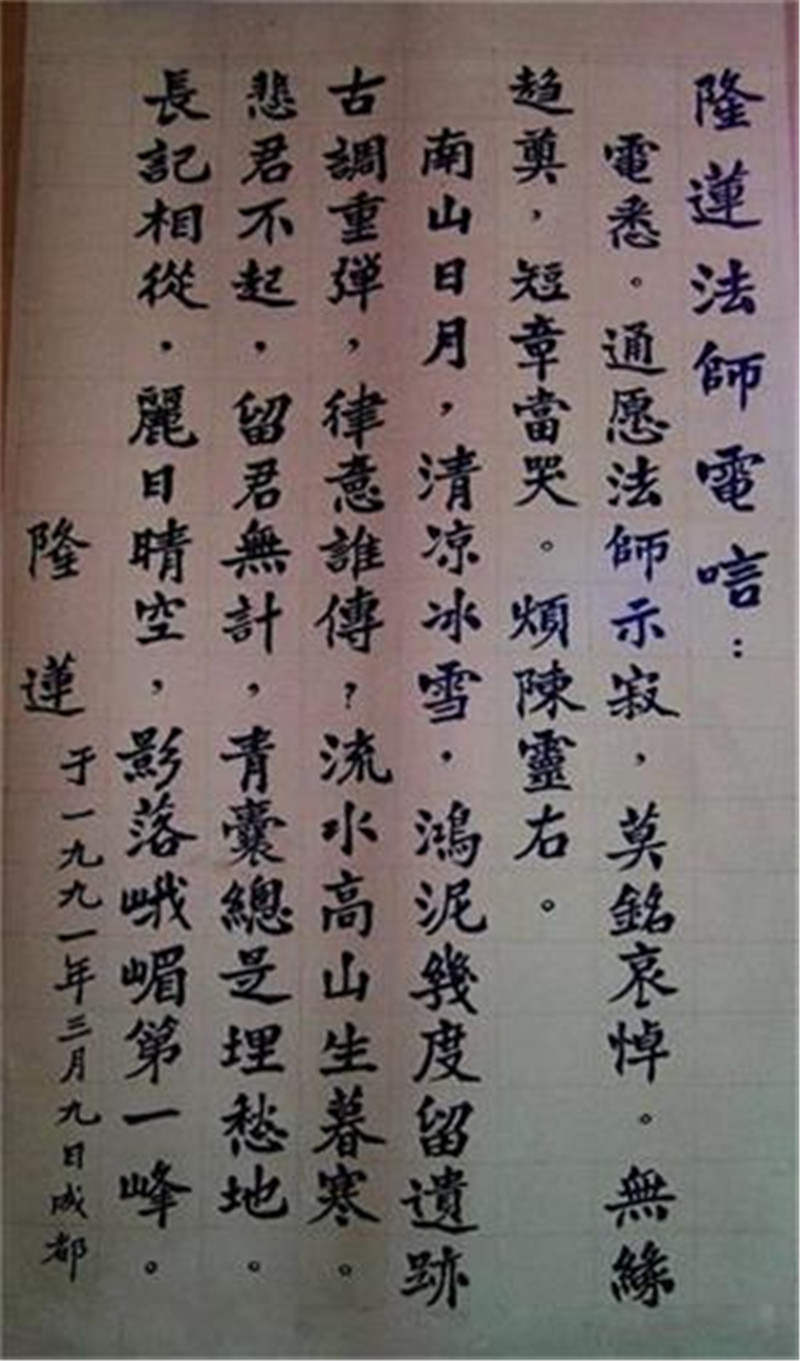 隆蓮法師電唁：
電悉。通愿法師示寂，莫銘哀悼。無緣
趋奠，短章當哭。煩陳靈右。
南山日月，清凉冰雪，鴻泥幾度留遺跡
古調重弹，律意誰傳？流水高山生暮寒。
悲君不起，留君無計，青囊總是埋愁地。
長記相從，麗日晴空，影落峨嵋第一峰。
隆蓮
于一九九一年三月九日成都